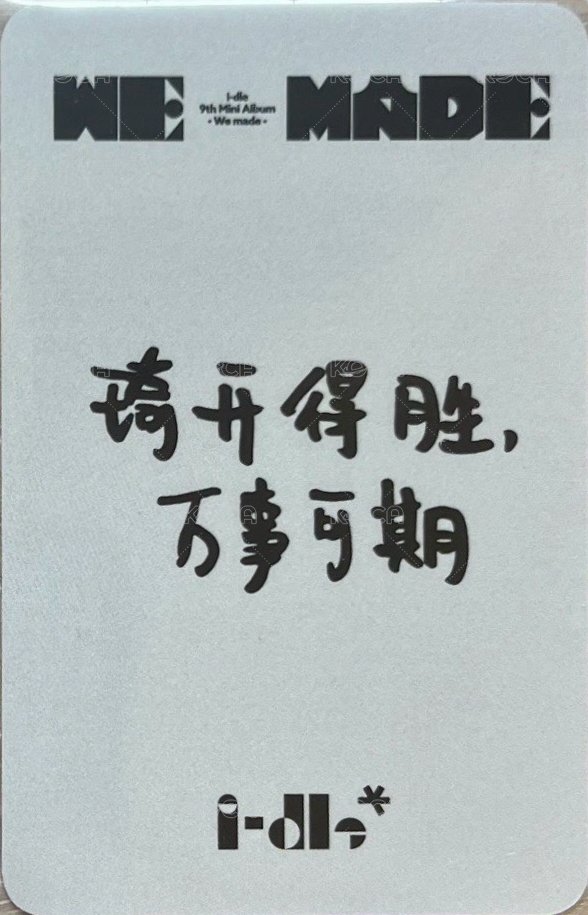 WE MADE
i-dle
9th Mini Album
- We made -
琦开得胜,
万事可期
i-dle*